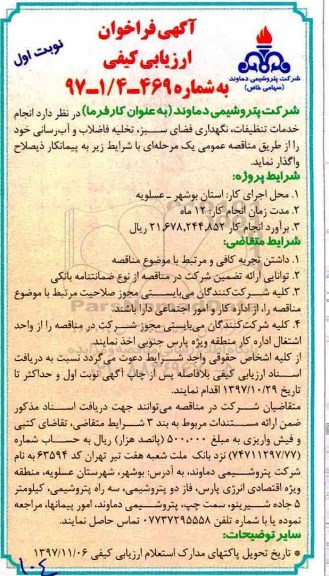 نوبت اول
آگهی فراخوان
ارزیابی کیفی
به شماره ۴۶۹-۱/۴-۹۷
شرکت پتروشیمی دماوند
(سهامی خاص)
شرکت پتروشیمی دماوند (به عنوان کارفرما) در نظر دارد انجام
خدمات تنظیفات، نگهداری فضای سبز، تخلیه فاضلاب و آب‌رسانی خود
را از طریق مناقصه عمومی یک مرحله‌ای با شرایط زیر به پیمانکار ذیصلاح
واگذار نماید.
شرایط پروژه:
۱. محل اجرای کار: استان بوشهر ـ عسلویه
۲. مدت زمان انجام کار: ۱۲ ماه
۳. برآورد انجام کار ۲۱,۶۷۸,۲۴۴,۸۵۲ ریال
شرایط متقاضی:
۱. داشتن تجربه کافی و مرتبط با موضوع مناقصه
۲. توانایی ارائه تضمین شرکت در مناقصه از نوع ضمانتنامه بانکی
۳. کلیه شرکت‌کنندگان می‌بایستی مجوز صلاحیت مرتبط با موضوع
مناقصه را، از اداره کار و امور اجتماعی دارا باشند.
۴. کلیه شرکت‌کنندگان می‌بایستی مجوز شرکت در مناقصه را از واحد
اشتغال اداره کار منطقه ویژه پارس جنوبی اخذ نمایند.
از کلیه اشخاص حقوقی واجد شرایط دعوت می‌گردد نسبت به دریافت
اسناد ارزیابی کیفی بلافاصله پس از چاپ آگهی نوبت اول و حداکثر تا
تاریخ ۱۳۹۷/۱۰/۲۹ اقدام نمایند.
متقاضیان شرکت در مناقصه می‌توانند جهت دریافت اسناد مذکور
ضمن ارائه مستندات مربوط به بند ۳ شرایط متقاضی، تقاضای کتبی
و فیش واریزی به مبلغ ۵۰۰,۰۰۰ (پانصد هزار) ریال به حساب شماره
(۷۴۷۱۱۲۹۷/۷۷) نزد بانک ملت شعبه هفت تیر تهران کد ۶۳۵۹۴ به نام
شرکت پتروشیمی دماوند، به آدرس: بوشهر، شهرستان عسلویه، منطقه
ویژه اقتصادی انرژی پارس، فاز دو پتروشیمی، سه راه پتروشیمی، کیلومتر
۵ جاده شیرینو، سمت چپ، پتروشیمی دماوند، امور پیمانها، مراجعه
نموده یا با شماره تلفن ۰۷۷۳۷۲۹۵۵۵۸ تماس حاصل نمایند.
سایر توضیحات:
* تاریخ تحویل پاکتهای مدارک استعلام ارزیابی کیفی ۱۳۹۷/۱۱/۰۶